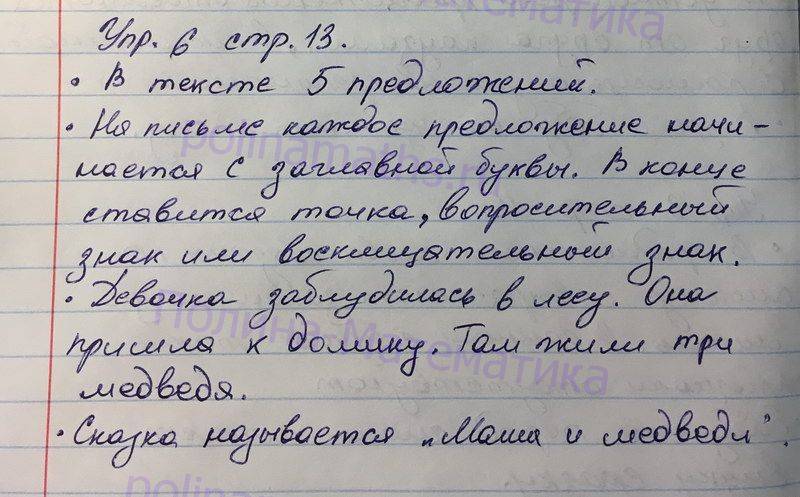 Упр. 6 стр. 13.
• В тексте 5 предложений.
• На письме каждое предложение начи-
нается с заглавной буквы. В конце
ставится точка, вопросительный
знак или восклицательный знак.
• Девочка заблудилась в лесу. Она
пришла к домику. Там жили три
медведя.
• Сказка называется „Маша и медведи".
математика
polinamaths.ru
Полина-Математика
polina